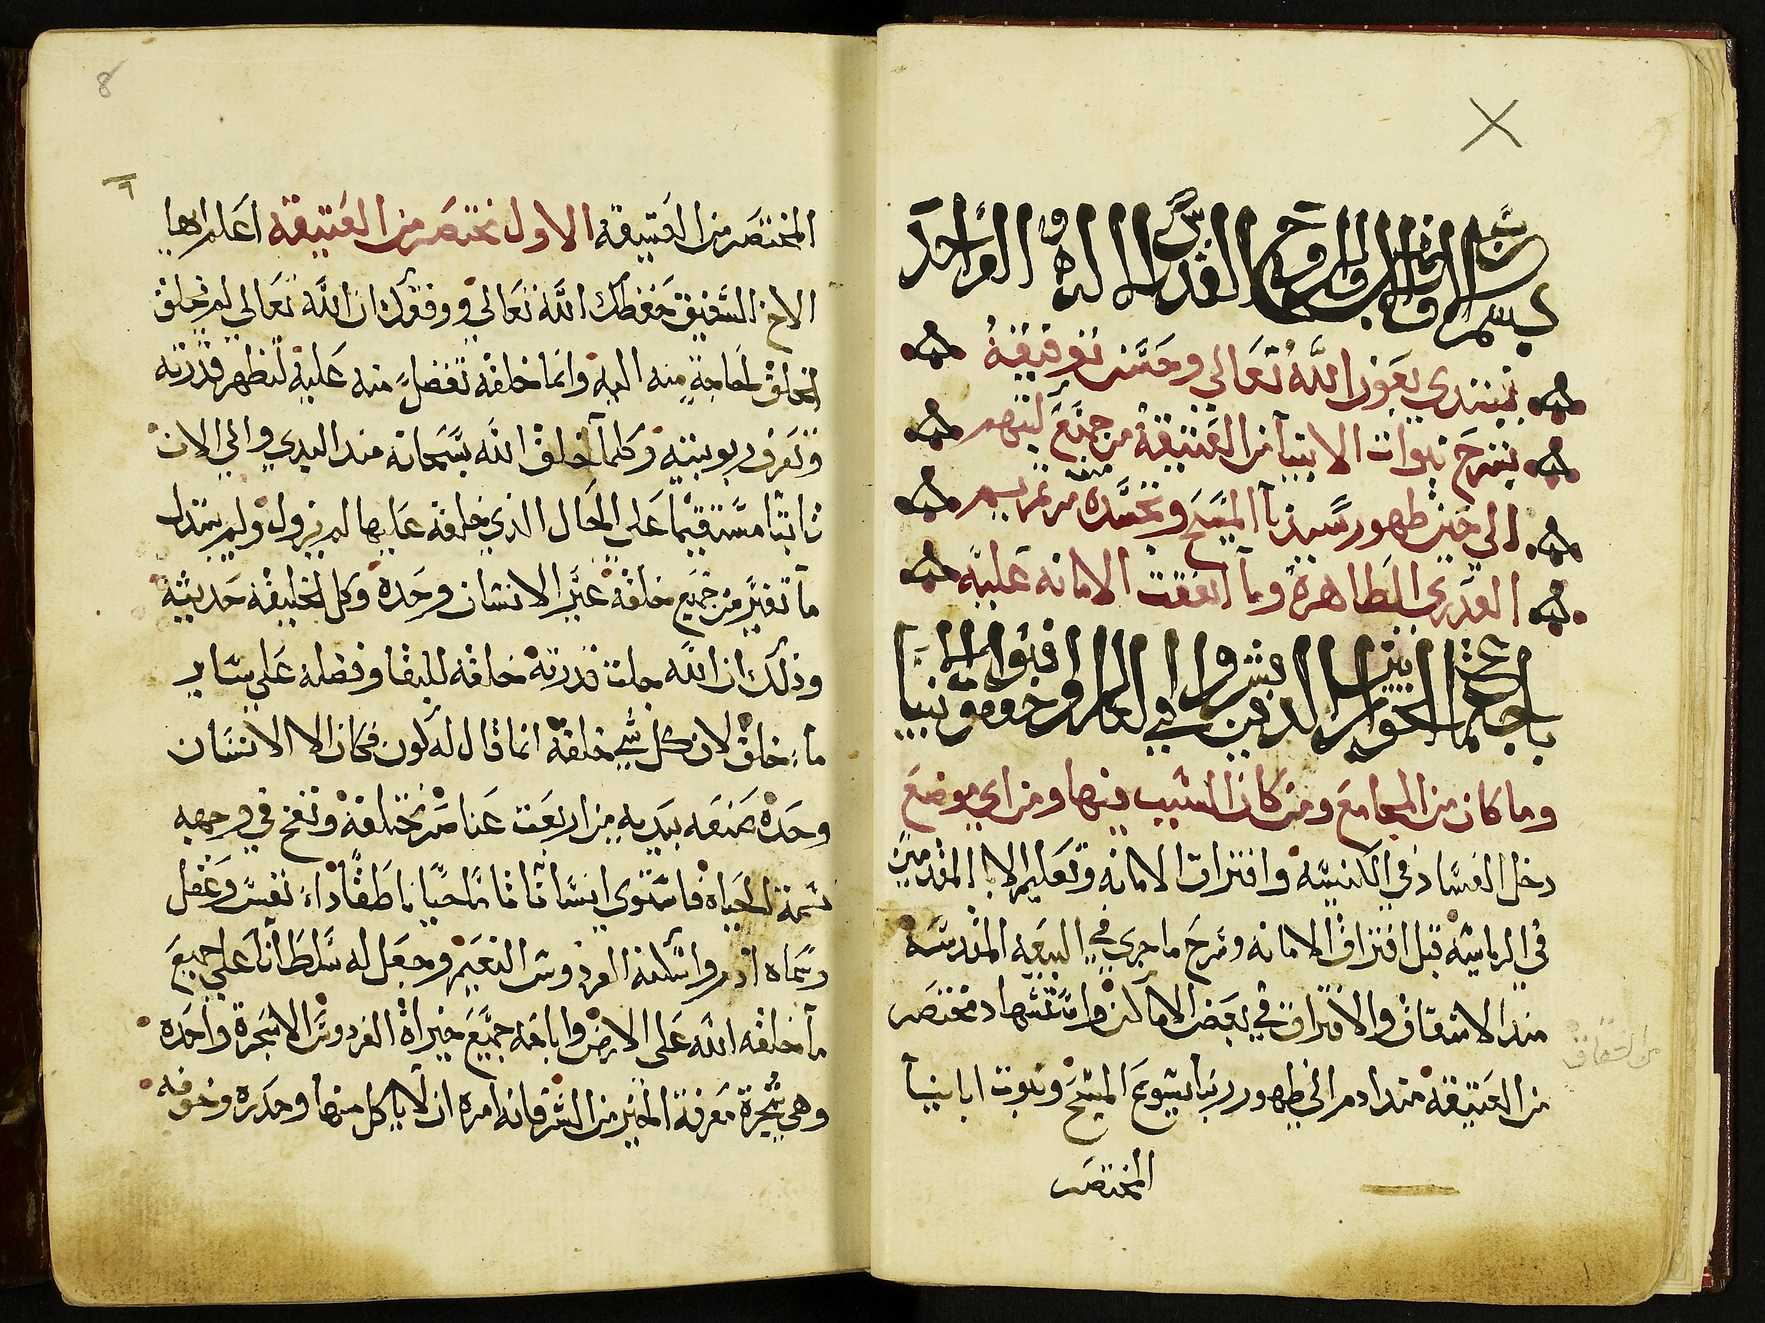 بسم الاب والابن والروح القدس الاله الواحد
نبتدي بعون الله تعالي وحسن توفيقه
بشرح نبوات الانبيآ من العتيقة من جميع كتبهم
الي حين ظهور سيدنا المسيح وتجسده من مريم
العدري الطاهرة وما اتفقت الامانه عليه
باجماع الحواريين الدين بشروا في العالم
وما كان من المجامع ومن كان السبب فيها ومن اي موضع
دخل الفساد في الكنيسه وافتراق الامانه وتعليم الابا المتقدمين
في الرياسة قبل افتراق الامانه وشرح ما جري في البيعه المقدسة
مند الانشقاق والافتراق في بعض الاماكن واستشهاد مختصر
من العتيقة مند ادم الي ظهور ربنا يشوع المسيح ونبوت انبيا
المختصر
8
٩
المختصر من العتيقة الاول مختصر من العتيقه اعلم ايها
الاخ الشفيق حفظك الله تعالي ووفقك ان الله تعالي لم يخلق
الخلق لحاجة منه اليه وانما خلقه تفضل منه عليه لتظهر قدرته
وتعرف ربوبيته وكلما خلق الله سبحانه مند البدي والي الان
ثابتا مستقيما علي الحال الذي خلقه عليها لم يزول ولم يتبدل
ما تغير من جميع خلقه غير الانسان وحده وكل الخليقه حديثة
وذلك ان الله جلت قدرته خلقه للبقا وفضله علي ساير
ما خلق لان كل شي خلقه انما قال له كون فكان الا الانسان
وحده صنعه بيديه من اربعت عناصر مختلفة ونفخ في وجهه
نسمة الحياه فاستوي انسانا تاما حيا ناطقا داء نفس وعقل
وسماه ادم واسكنه الفردوس النعيم وجعل له سلطانا علي جميع
ما خلقه الله علي الارض واباحه جميع خيراة الفردوس الا شجرة واحده
وهي شجرة معرفة الخير من الشر فانه امره ان لا ياكل منها وحدره وخوفه